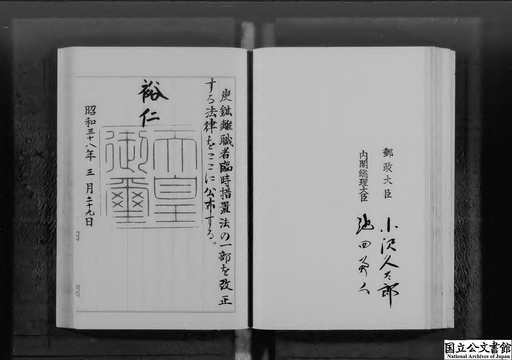 郵政大臣 小沢久太郎
内閣総理大臣 池田勇人
炭鉱離職者臨時措置法の一部を改正
する法律をここに公布する。
裕仁
天皇
御璽
昭和三十八年三月二十九日
国立公文書館
National Archives of Japan